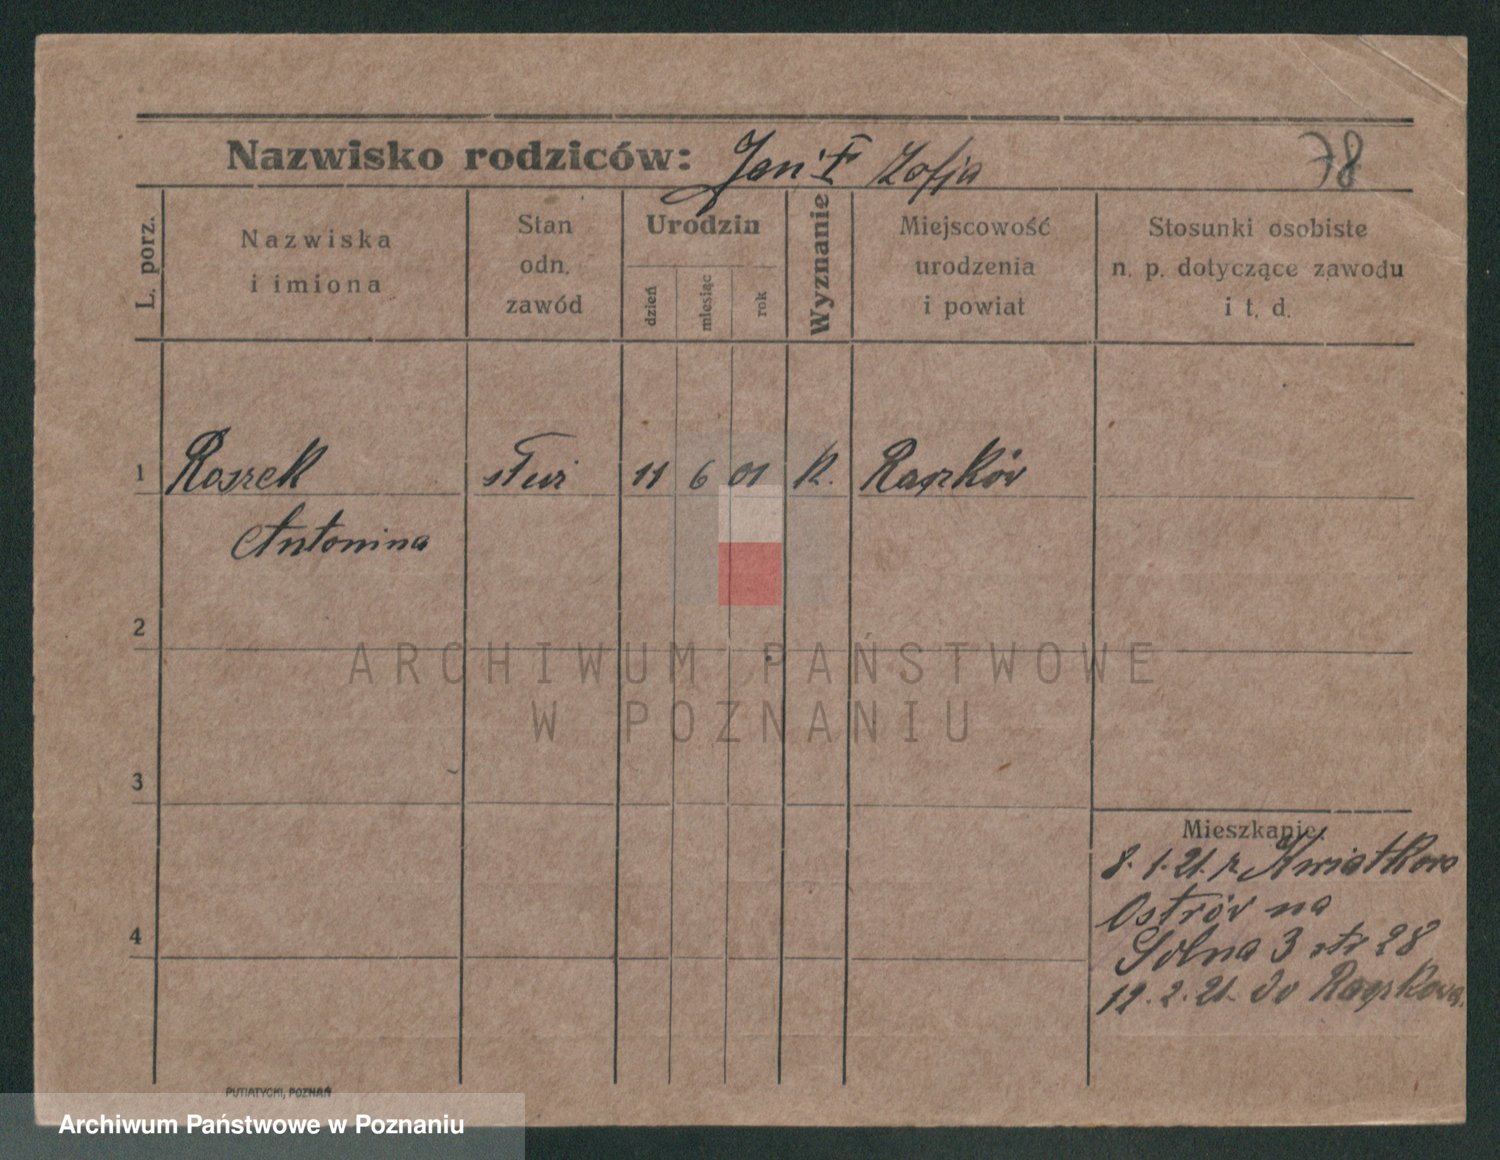 Nazwisko rodziców: Jan i Zofja
78
L. porz.
Nazwiska
i imiona
Stan
odn.
zawód
Urodzin
dzień
miesiąc
rok
Wyznanie
Miejscowość
urodzenia
i powiat
Stosunki osobiste
n. p. dotyczące zawodu
i t. d.
1 Roszek służ 11 6 01 k. Raszków
Antonina
2
ARCHIWUM PAŃSTWOWE
W POZNANIU
3
Mieszkanie:
8.1.21. z Kwiatkowa
Ostrów na
4
Solna 3 str 28
12.2.21. do Raszkowa.
PUTIATYCKI, POZNAŃ
Archiwum Państwowe w Poznaniu